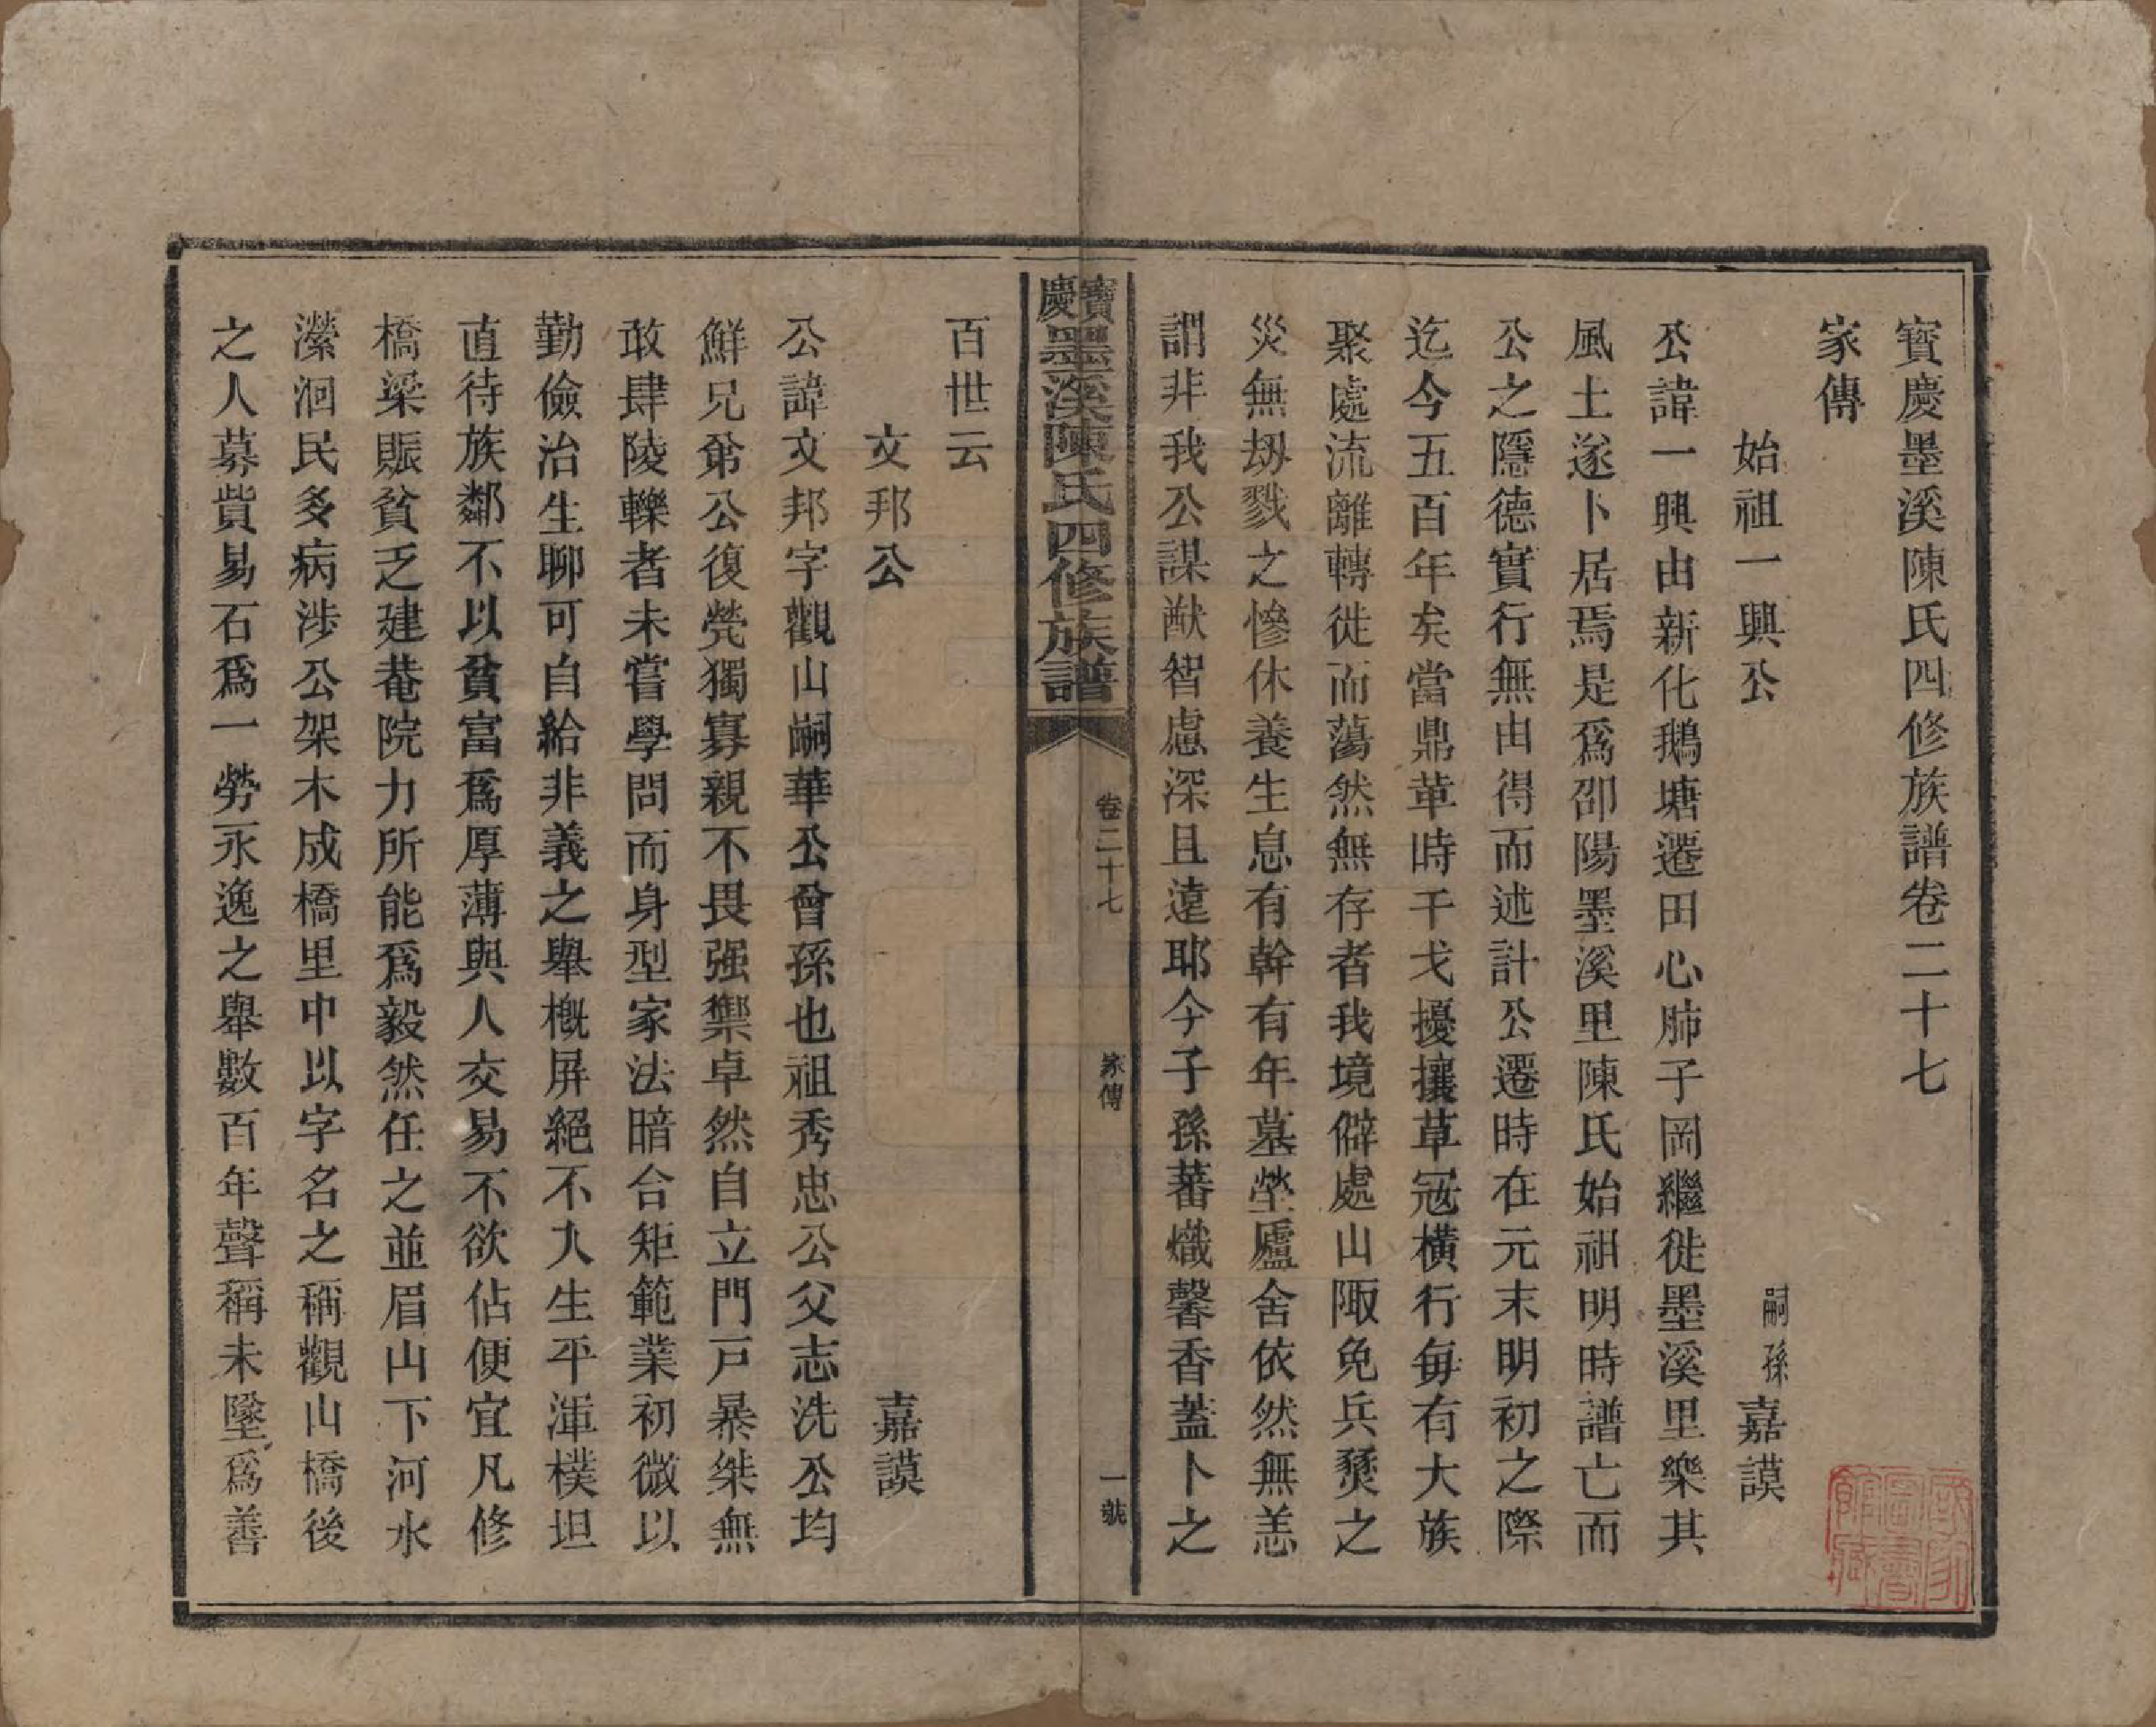 寶慶墨溪陳氏四修族譜卷二十七
家傳
始祖一興公　嗣孫嘉謨
公諱一興由新化鵝塘遷田心肺子岡繼徙墨溪里樂其
風土遂卜居焉是爲邵陽墨溪里陳氏始祖明時譜亡而
公之隱德實行無由得而述計公遷時在元末明初之際
迄今五百年矣當鼎革時干戈擾攘草寇橫行每有大族
聚處流離轉徙而蕩然無存者我境僻處山陬免兵燹之
災無刼戮之慘休養生息有幹有年墓塋廬舍依然無恙
謂非我公謀猷智慮深且遠耶今子孫蕃熾馨香蓋卜之
寶慶墨溪陳氏四修族譜　卷二十七　家傳　一號
百世云
文邦公　嘉謨
公諱文邦字觀山嗣華公曾孫也祖秀忠公父志洗公均
鮮兄弟公復煢獨寡親不畏强禦卓然自立門戸暴桀無
敢肆陵轢者未嘗學問而身型家法暗合矩範業初微以
勤儉治生聊可自給非義之舉槪屏絕不入生平渾樸坦
直待族鄰不以貧富爲厚薄與人交易不欲佔便宜凡修
橋梁賑貧乏建菴院力所能爲毅然任之並眉山下河水
瀠洄民多病涉公架木成橋里中以字名之稱觀山橋後
之人募貲易石爲一勞永逸之舉數百年聲稱未墜爲善
國家圖書館藏